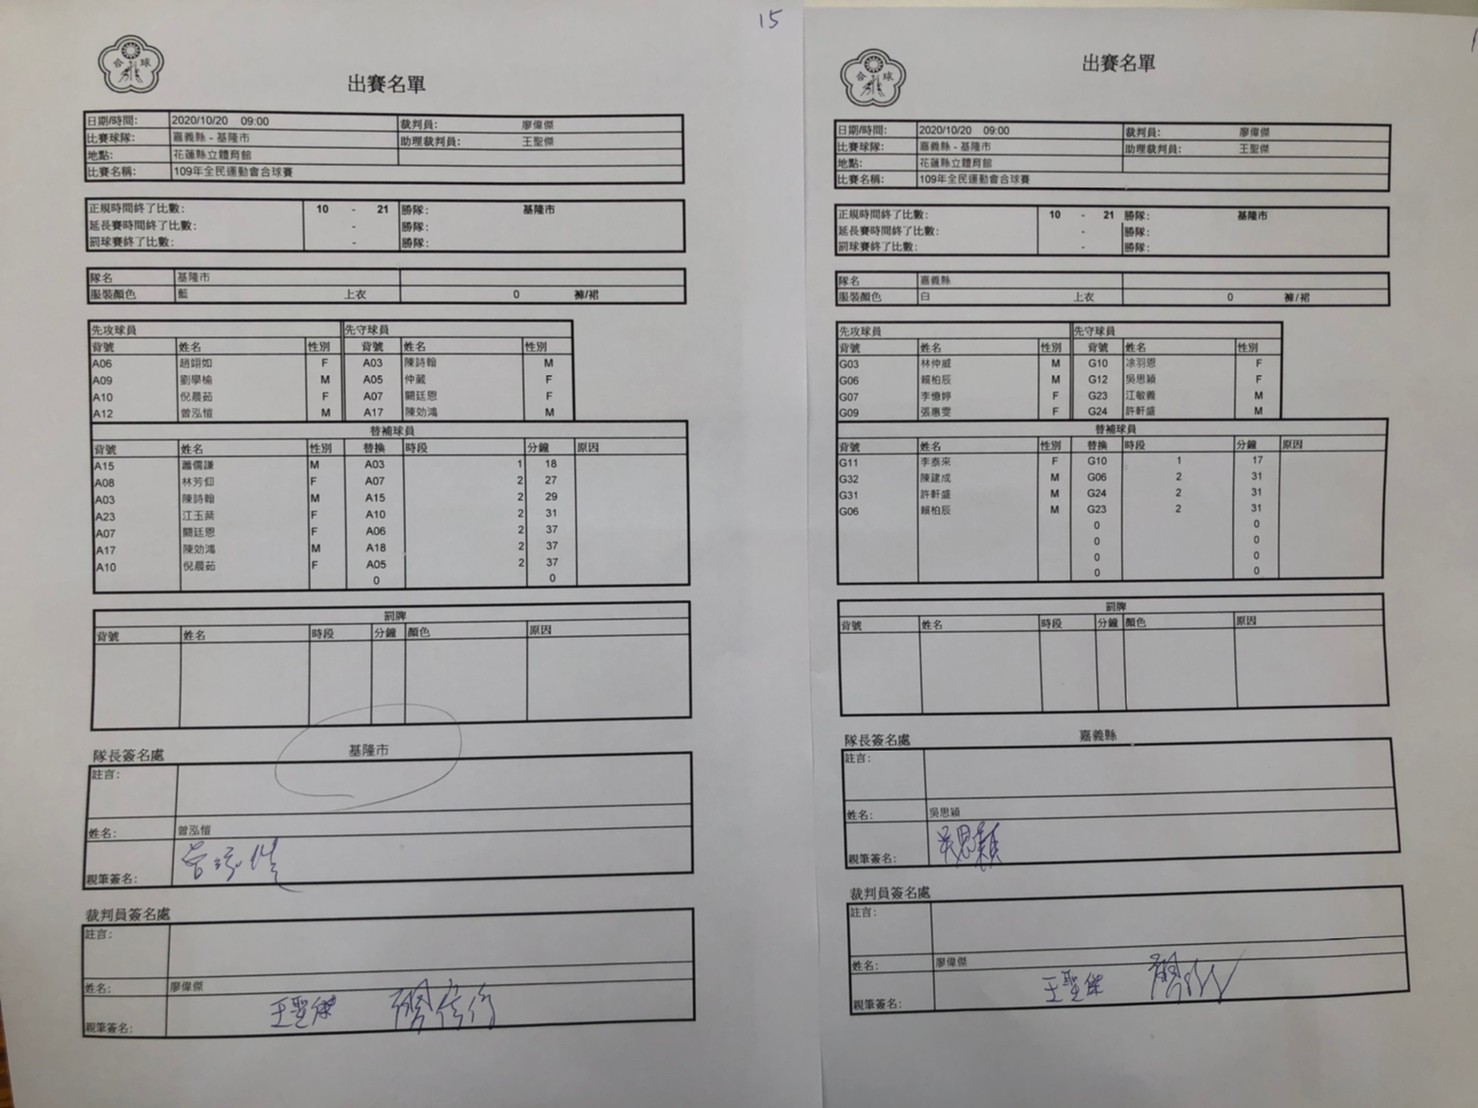 15
合 球
出賽名單
日期/時間: 2020/10/20 09:00 裁判員: 廖偉傑
比賽球隊: 嘉義縣 - 基隆市 助理裁判員: 王聖傑
地點: 花蓮縣立體育館
比賽名稱: 109年全民運動會合球賽
正規時間終了比數: 10 - 21 勝隊: 基隆市
延長賽時間終了比數: - 勝隊:
罰球賽終了比數: - 勝隊:
隊名 基隆市
服裝顏色 藍 上衣 0 褲/裙
先攻球員 先守球員
背號 姓名 性別 背號 姓名 性別
A06 趙翊如 F A03 陳詩翰 M
A09 劉學榆 M A05 仲葳 F
A10 倪晨茹 F A07 闕廷恩 F
A12 曾泓愷 M A17 陳効鴻 M
替補球員
背號 姓名 性別 替換 時段 分鐘 原因
A15 蕭儒謙 M A03 1 18
A08 林芳伃 F A07 2 27
A03 陳詩翰 M A15 2 29
A23 江玉葉 F A10 2 31
A07 闕廷恩 F A06 2 37
A17 陳効鴻 M A18 2 37
A10 倪晨茹 F A05 2 37
0 0
罰牌
背號 姓名 時段 分鐘 顏色 原因
隊長簽名處 基隆市
註言:
姓名: 曾泓愷
親筆簽名: 曾泓愷
裁判員簽名處
註言:
姓名: 廖偉傑
親筆簽名: 王聖傑 廖偉傑
合 球
出賽名單
日期/時間: 2020/10/20 09:00 裁判員: 廖偉傑
比賽球隊: 嘉義縣 - 基隆市 助理裁判員: 王聖傑
地點: 花蓮縣立體育館
比賽名稱: 109年全民運動會合球賽
正規時間終了比數: 10 - 21 勝隊: 基隆市
延長賽時間終了比數: - 勝隊:
罰球賽終了比數: - 勝隊:
隊名 嘉義縣
服裝顏色 白 上衣 0 褲/裙
先攻球員 先守球員
背號 姓名 性別 背號 姓名 性別
G03 林仲威 M G10 凃羽恩 F
G06 賴柏辰 M G12 吳思穎 F
G07 李憶婷 F G23 江敏義 M
G09 張惠雯 F G24 許軒盛 M
替補球員
背號 姓名 性別 替換 時段 分鐘 原因
G11 李泰來 F G10 1 17
G32 陳建成 M G06 2 31
G31 許軒盛 M G24 2 31
G06 賴柏辰 M G23 2 31
0 0
0 0
0 0
0 0
罰牌
背號 姓名 時段 分鐘 顏色 原因
隊長簽名處 嘉義縣
註言:
姓名: 吳思穎
親筆簽名: 吳思穎
裁判員簽名處
註言:
姓名: 廖偉傑
親筆簽名: 王聖傑